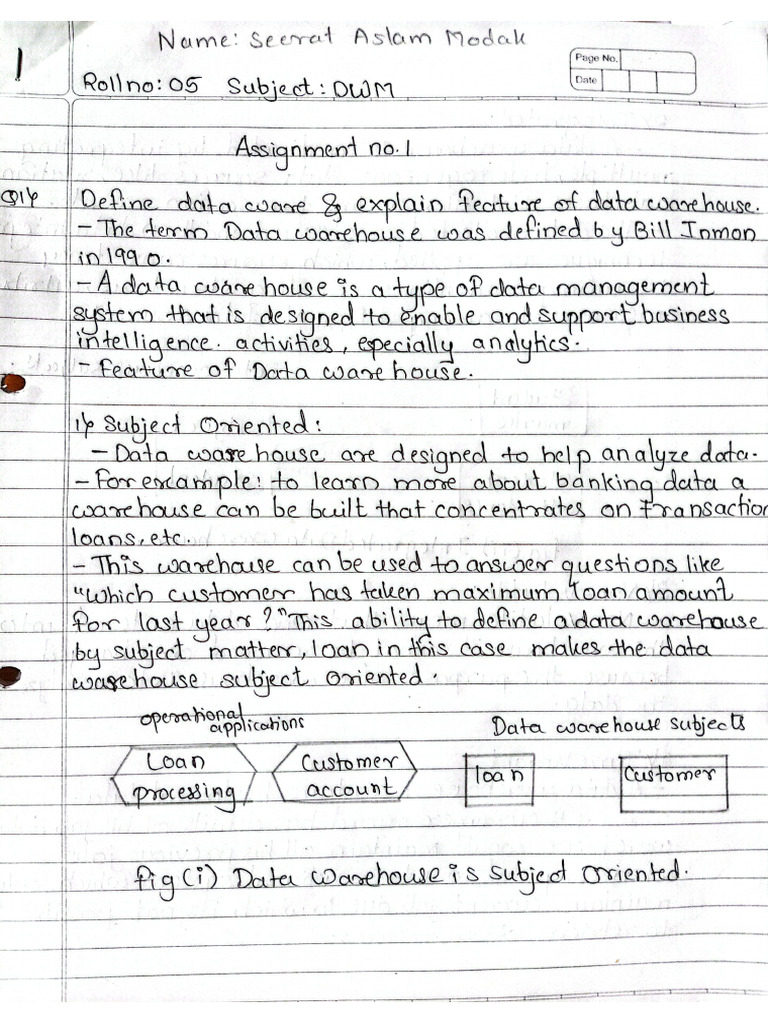 1
Name: Seerat Aslam Modak
Page No.
Roll no: 05 Subject: DWM
Date
Assignment no. 1
Q1)
Define data ware & explain feature of data warehouse.
- The term Data warehouse was defined by Bill Inmon
in 1990.
- A data warehouse is a type of data management
system that is designed to enable and support business
intelligence. activities, especially analytics.
- Feature of Data warehouse.
1) Subject Oriented:
- Data warehouse are designed to help analyze data.
- For example: to learn more about banking data a
warehouse can be built that concentrates on transaction
loans, etc.
- This warehouse can be used to answer questions like
"which customer has taken maximum loan amount
for last year?" This ability to define a data warehouse
by subject matter, loan in this case makes the data
warehouse subject oriented.
operational applications
Data warehouse subjects
Loan processing
Customer account
loan
Customer
fig (i) Data warehouse is subject oriented.